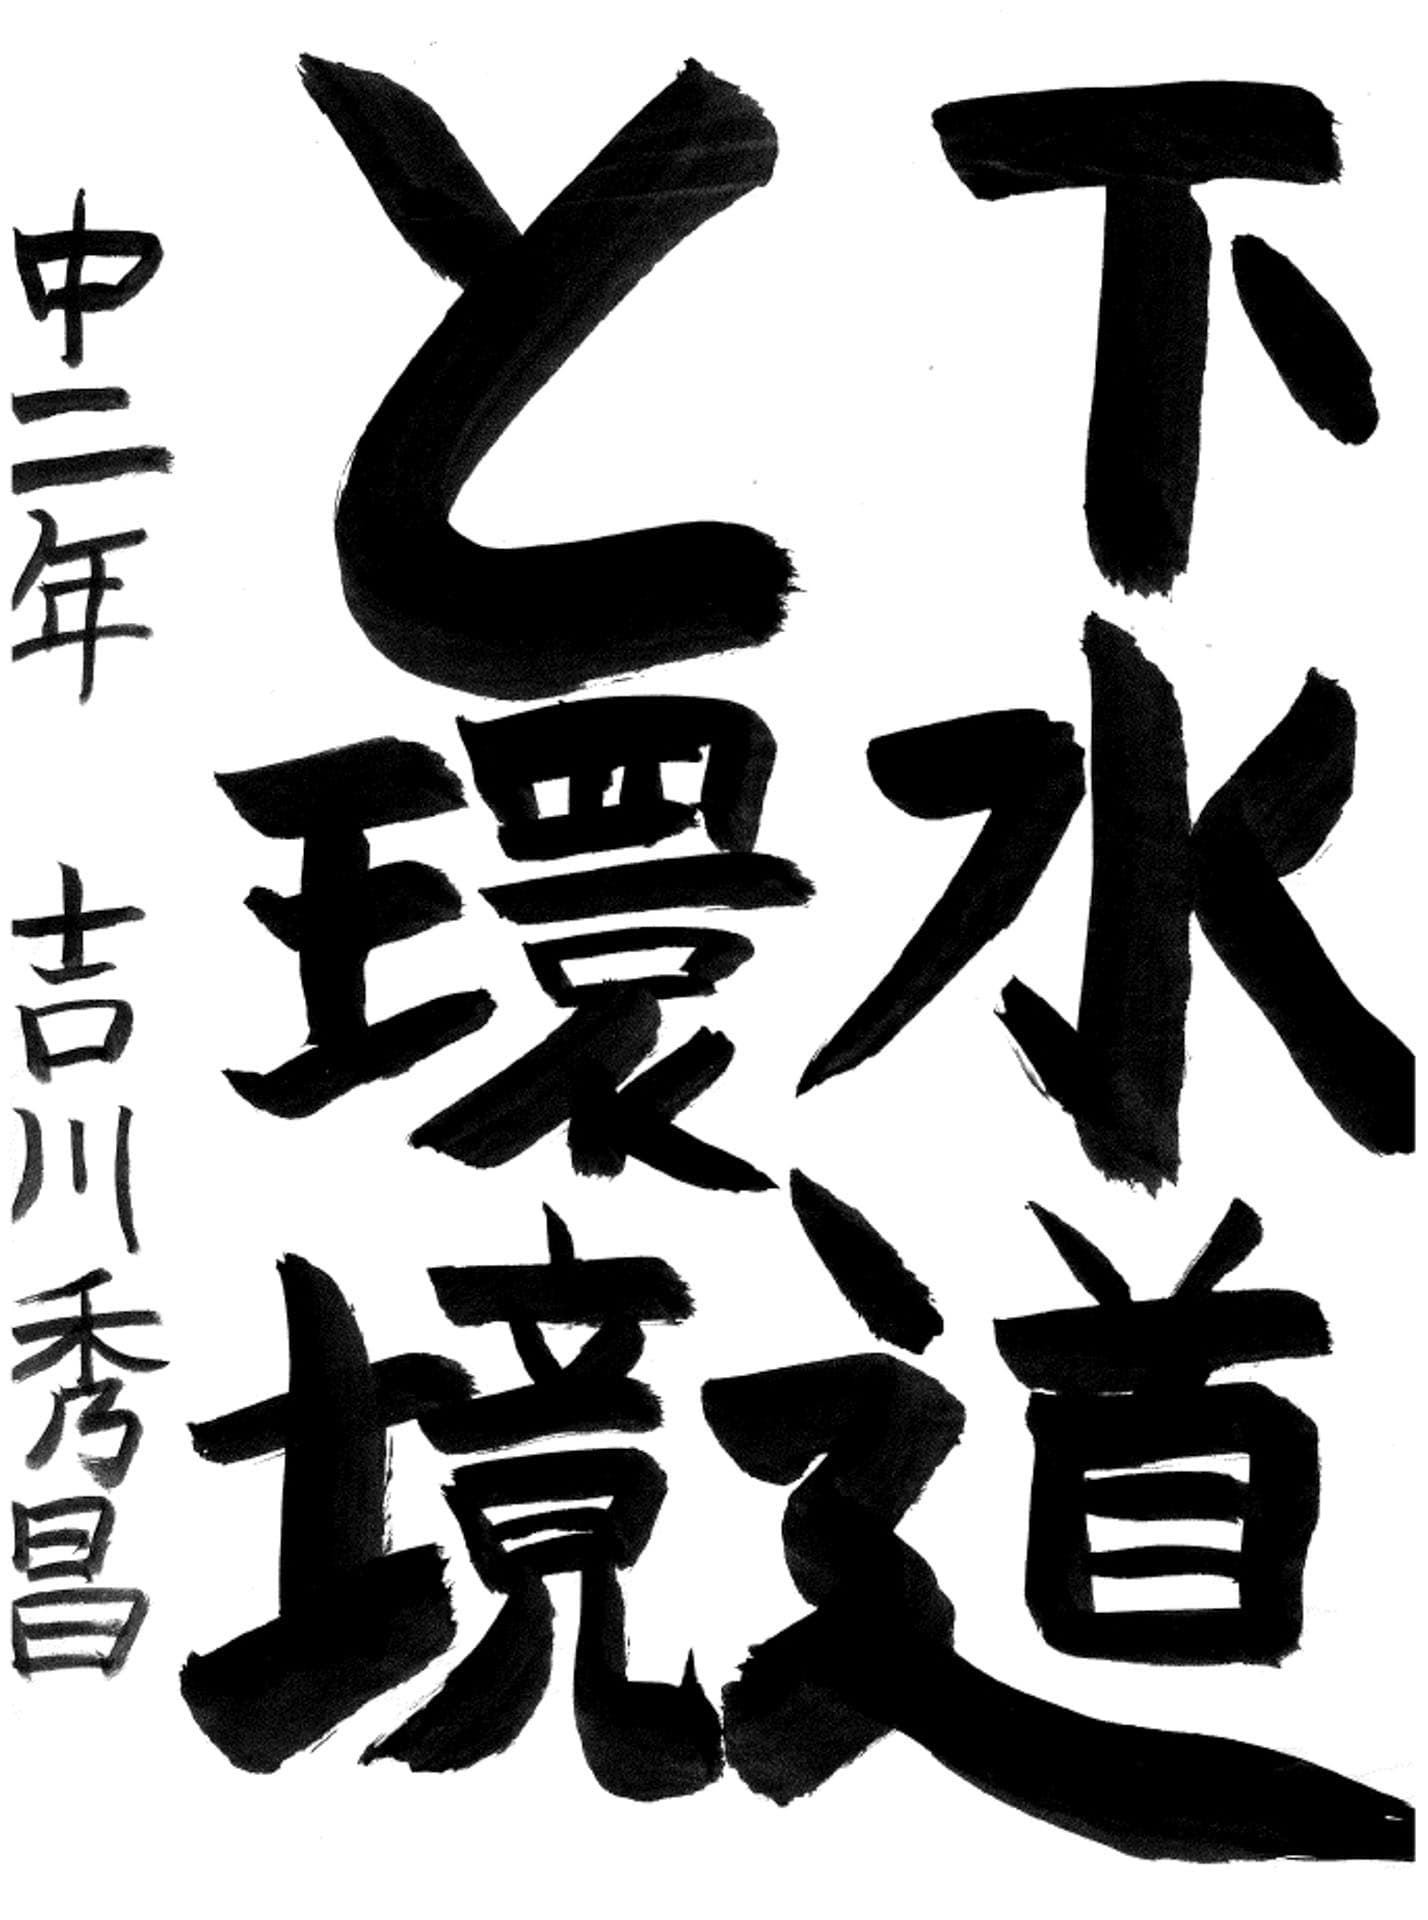 下水道
と環境
中二年 吉川秀昌